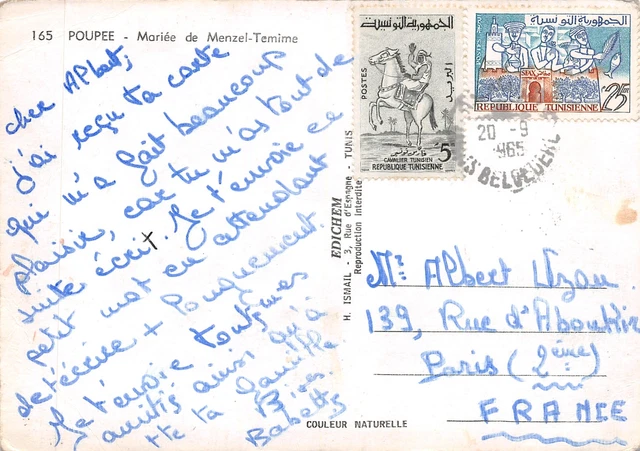 165 POUPEE - Mariée de Menzel-Temime
cher Albert,
j'ai reçu ta carte
qui m'a fait beaucoup
plaisir, car tu m'as tout de
suite écrit. Je t'envoie ce
petit mot en attendant
de t'écrire + longuement.
Je t'envoie toutes mes
amitiés ainsi qu'à
tte ta famille
Bises
Babette
EDICHEM
H. ISMAIL - 3, Rue d'Espagne - TUNIS
Reproduction interdite
COULEUR NATURELLE
الجمهورية التونسية
POSTES
البريد
فارس تونسي
CAVALIER TUNISIEN
5
REPUBLIQUE TUNISIENNE
الجمهورية التونسية
SFAX
25
REPUBLIQUE TUNISIENNE
20 -9
1965
BELVEDERE
Mr Albert Uzan
139, Rue d'Aboukir
Paris (2ème)
FRANCE